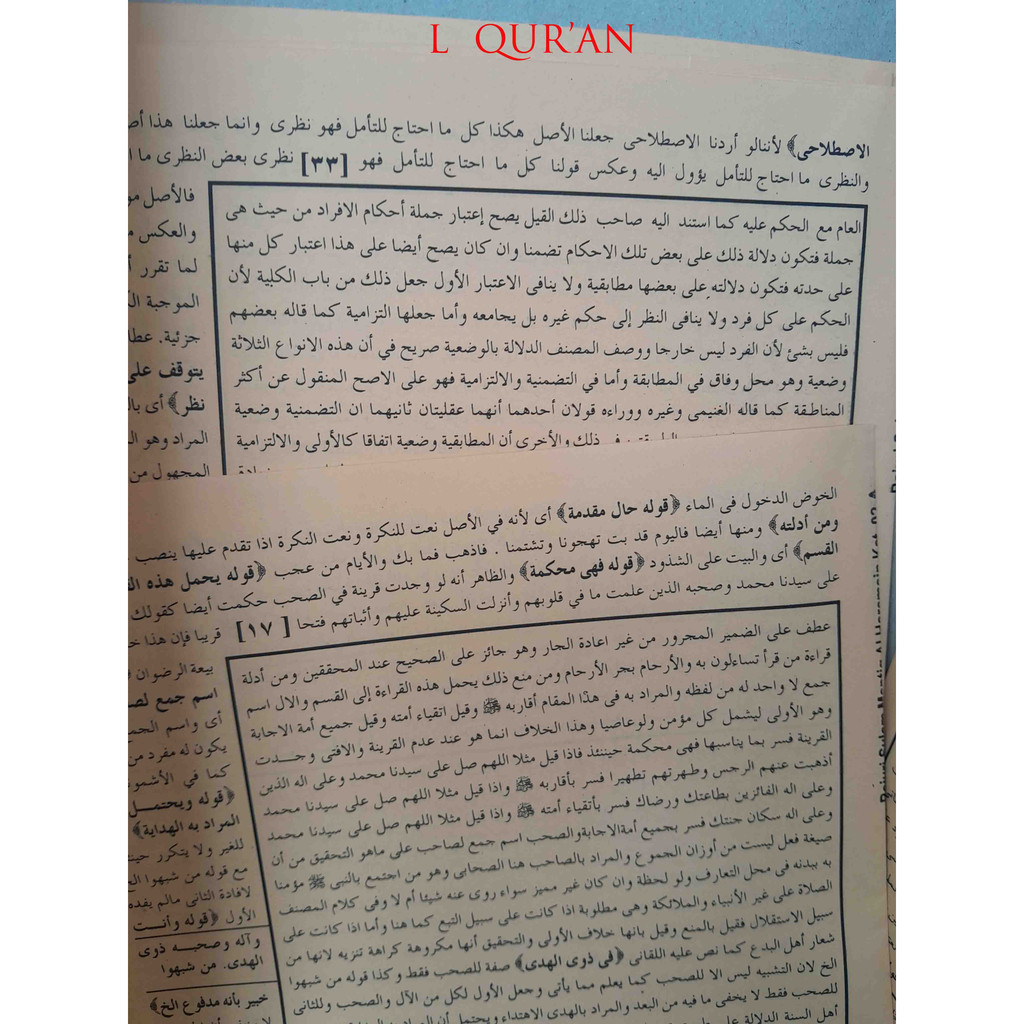 L QUR'AN
الاصطلاحى﴾ لأننالو أردنا الاصطلاحى جعلنا الأصل هكذا كل ما احتاج للتأمل فهو نظرى وانما جعلنا هذا
والنظرى ما احتاج للتأمل يؤول اليه وعكس قولنا كل ما احتاج للتأمل فهو [٣٣] نظرى بعض النظرى ما
العام مع الحكم عليه كما استند اليه صاحب ذلك القيل يصح إعتبار جملة أحكام الافراد من حيث هى
جملة فتكون دلالة ذلك على بعض تلك الاحكام تضمنا وان كان يصح أيضا على هذا اعتبار كل منها
على حدته فتكون دلالته على بعضها مطابقية ولا ينافى الاعتبار الأول جعل ذلك من باب الكلية لأن
الحكم على كل فرد ولا ينافى النظر إلى حكم غيره بل يجامعه وأما جعلها التزامية كما قاله بعضهم
فليس بشئ لأن الفرد ليس خارجا ووصف المصنف الدلالة بالوضعية صريح في أن هذه الانواع الثلاثة
وضعية وهو محل وفاق في المطابقة وأما في التضمنية والالتزامية فهو على الاصح المنقول عن أكثر
المناطقة كما قاله الغنيمى وغيره ووراءه قولان أحدهما أنهما عقليتان ثانيهما ان التضمنية وضعية
في ذلك والأخرى أن المطابقية وضعية اتفاقا كالأولى والالتزامية
فالأصل
والعكس
لما تقرر
الموجبة
جزئية.
يتوقف على
نظر﴾ أى
المراد وهو
المجهول من
الخوض الدخول فى الماء ﴿قوله حال مقدمة﴾ أى لأنه في الأصل نعت للنكرة ونعت النكرة اذا تقدم عليها ينصب
ومن أدلته﴾ ومنها أيضا فاليوم قد بت تهجونا وتشتمنا . فاذهب فما بك والأيام من عجب ﴿قوله يحمل هذه
القسم﴾ أى والبيت على الشذوذ ﴿قوله فهى محكمة﴾ والظاهر أنه لو وجدت قرينة في الصحب حكمت أيضا كقولك
على سيدنا محمد وصحبه الذين علمت ما في قلوبهم وأنزلت السكينة عليهم وأثباتهم فتحا [١٧] قريبا فإن هذا
عطف على الضمير المجرور من غير اعادة الجار وهو جائز على الصحيح عند المحققين ومن أدلة
قراءة من قرأ تساءلون به والأرحام بجر الأرحام ومن منع ذلك يحمل هذه القراءة إلى القسم والال اسم
جمع لا واحد له من لفظه والمراد به فى هذا المقام أقاربه ﷺ وقيل اتقياء أمته وقيل جميع أمة الاجابة
وهو الأولى ليشمل كل مؤمن ولوعاصيا وهذا الخلاف انما هو عند عدم القرينة والافتى وجدت
القرينة فسر بما يناسبها فهى محكمة حينئذ فاذا قيل مثلا اللهم صل على سيدنا محمد وعلى اله الذين
أذهبت عنهم الرجس وطهرتهم تطهيرا فسر بأقاربه ﷺ واذا قيل مثلا اللهم صل على سيدنا محمد
وعلى اله الفائزين بطاعتك ورضاك فسر بأتقياء أمته ﷺ واذا قيل مثلا اللهم صل على سيدنا محمد
وعلى اله سكان جنتك فسر بجميع أمةالاجابةوالصحب اسم جمع لصاحب على ماهو التحقيق من أن
صيغة فعل ليست من أوزان الجموع والمراد بالصاحب هنا الصحابى وهو من اجتمع بالنبي ﷺ مؤمنا
به ببدنه في محل التعارف ولو لحظة وان كان غير مميز سواء روى عنه شيئا أم لا وفى كلام المصنف
الصلاة على غير الأنبياء والملائكة وهى مطلوبة اذا كانت على سبيل التبع كما هنا وأما اذا كانت على
سبيل الاستقلال فقيل بالمنع وقيل بانها خلاف الأولى والتحقيق أنها مكروهة كراهة تنزيه لانها من
شعار أهل البدع كما نص عليه اللقانى ﴿فى ذوى الهدى﴾ صفة للصحب فقط وكذا قوله من شبهوا
الخ لان التشبيه ليس الا للصحب كما يعلم مما يأتى وجعل الأول لكل من الآل والصحب وللثانى
للصحب فقط لا يخفى ما فيه من البعد والمراد بالهدى الاهتداء ويحتمل أن
أهل السنة الدلالة على
بيعة الرضوان
اسم جمع
أى واسم
يكون له مفرد من
كما في
﴿قوله ويحتمل
المراد به الهداية﴾
للغير ولا يتكرر
مع قوله من شبهوا
لافادة الثانى مالم يفده
الأول ﴿قوله وأنست
وآله وصحبه ذوى
الهدى. من شبهوا
خبير بأنه مدفوع الخ﴾